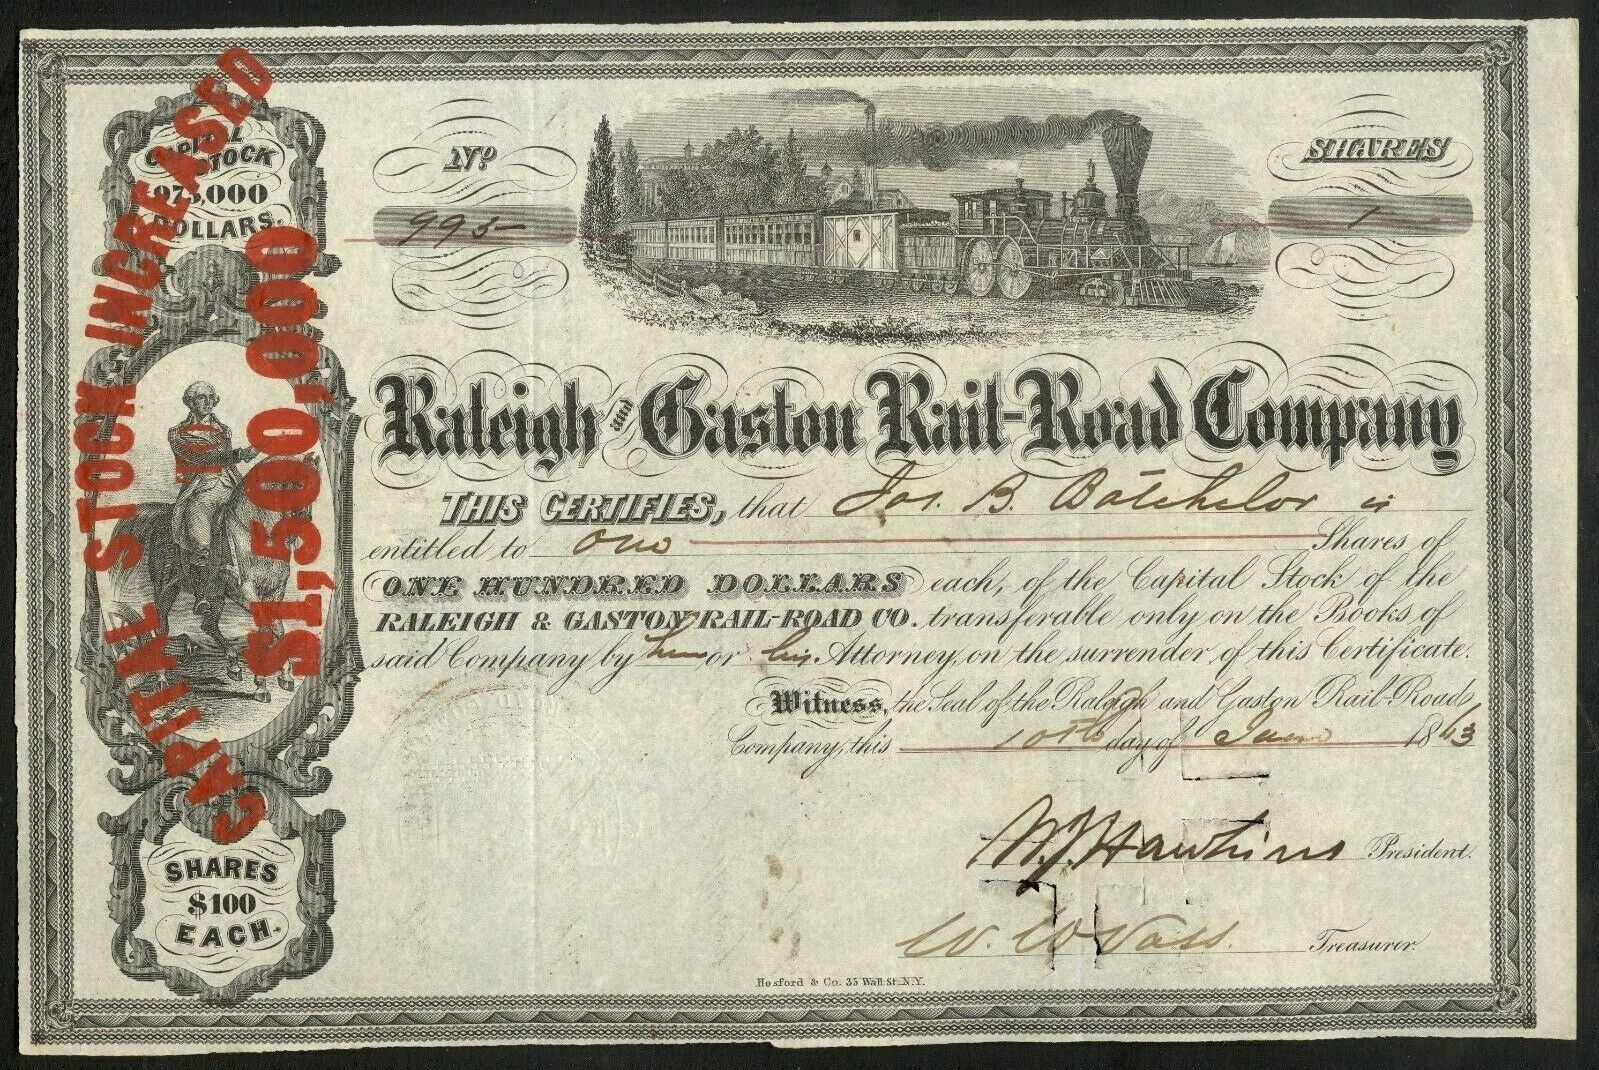 CAPITAL STOCK
975,000
DOLLARS.
CAPITAL STOCK INCREASED
TO
$1,500,000
SHARES
$100
EACH.
No
995
SHARES
1
Raleigh and Gaston Rail-Road Company
THIS CERTIFIES, that Jos. B. Batchelor is
entitled to One Shares of
ONE HUNDRED DOLLARS each, of the Capital Stock of the
RALEIGH & GASTON RAIL-ROAD CO. transferable only on the Books of
said Company by him or his Attorney, on the surrender of this Certificate.
Witness, the Seal of the Raleigh and Gaston Rail-Road
Company, this 10th day of 1863
W. J. Hawkins President.
W. W. Vass. Treasurer.
Hosford & Co. 35 Wall St. N.Y.